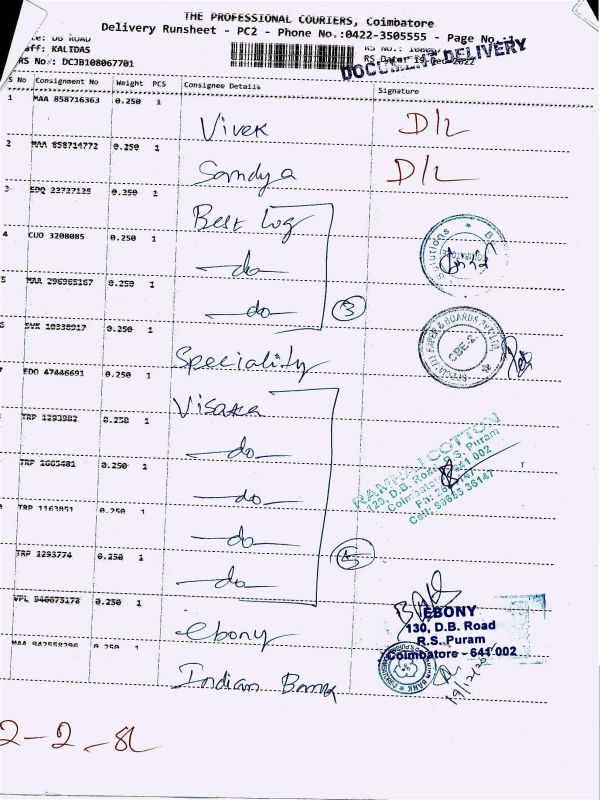 THE PROFESSIONAL COURIERS, Coimbatore
Delivery Runsheet - PC2 - Phone No.:0422-3505555 - Page No.:1
DB ROAD
aff: KALIDAS
RS No.: DCJB108067701
RS Date: 19-Dec-2022
DOCUMENT DELIVERY
S No Consignment No Weight PCS Consignee Details Signature
1 MAA 858716363 0.250 1
Vivek D/L
2 MAA 858714772 0.250 1
Sandya D/L
3 EDQ 22727125 0.250 1
Best Log
4 CUO 3208085 0.250 1
-do-
5 MAA 296965167 0.250 1
-do- 3
6 10338917 0.250 1
Speciality
7 EDO 47446691 0.250 1
Visaka
TRP 1293982 0.250 1
-do-
TRP 1605481 0.250 1
-do-
TRP 1163851 0.250 1
-do- 5
TRP 1293774 0.250 1
-do-
VPL 940675178 0.250 1
ebony
MAA 942558296 0.250 1
Indian Bank
olutions
SPECIALITY PAPER & BOARDS PVT LTD
CBE-2
RAMRAJ COTTON
120, D.B. Road, R.S. Puram
Coimbatore - 641 002
Cell: 99655 36147
EBONY
130, D.B. Road
R.S. Puram
Coimbatore - 641 002
BANK
19/12/20
2-2-82